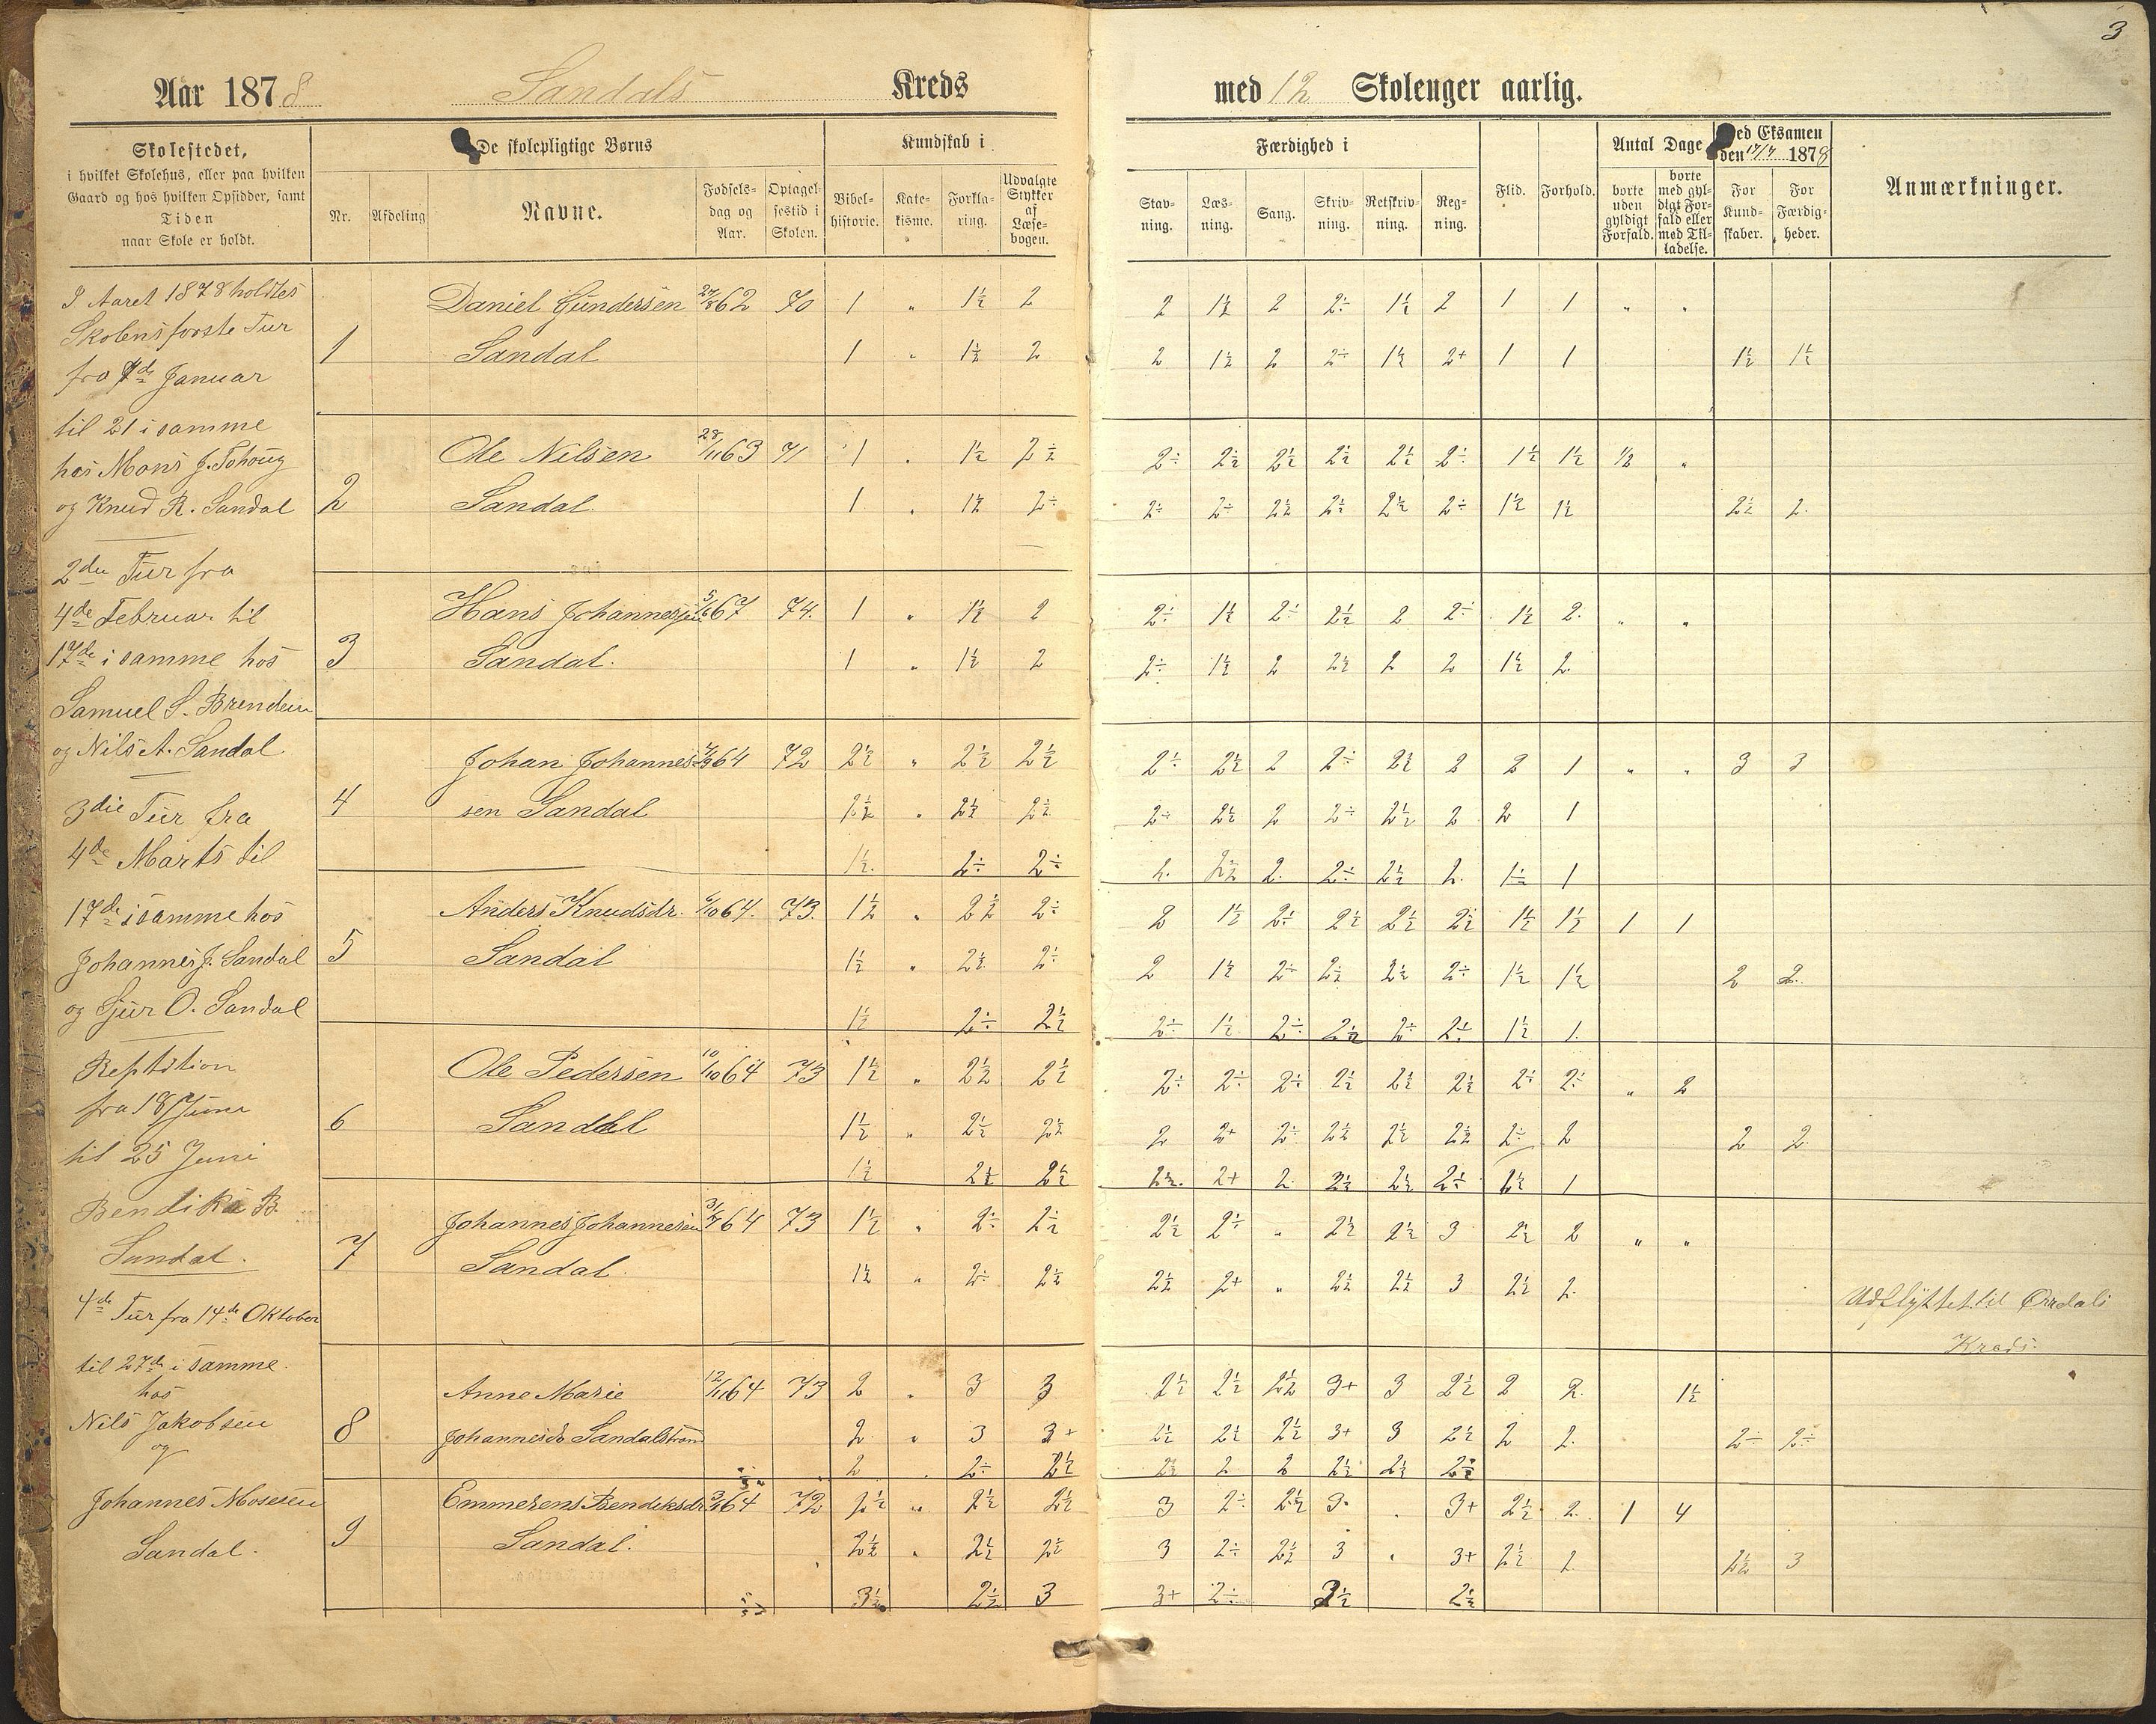 3
Aar 1878 Sandals Kreds med 12 Skolenger aarlig.
Skolestedet,
i hvilket Skolehus, eller paa hvilken
Gaard og hos hvilken Opsidder, samt
Tiden
naar Skole er holdt.
De skolepligtige Børns
Nr. Afdeling Navne. Fødsels-dag og Aar. Optagelsestid i Skolen.
Kundskab i
Bibelhistorie. Katekisme. Forklaring. Udvalgte Stykker af Læsebogen.
Færdighed i
Stavning. Læsning. Sang. Skrivning. Retskrivning. Regning.
Flid. Forhold.
Antal Dage
borte uden gyldigt Forfald. borte med gyldigt Forfald eller med Tilladelse.
Ved Eksamen
den 17/7 1878
For Kundskaber. For Færdigheder.
Anmærkninger.
I Aaret 1878 holdtes
Skolens første Tur
fra 7de Januar
til 21 i samme
hos Mons J.
og Knud R. Sandal
2den Tur fra
4de Februar til
17de i samme hos
Samuel S. Brendeen
og Nils A. Sandal
3die Tur fra
4de Marts til
17de i samme hos
Johannes J. Sandal
og Sjur O. Sandal
fra 18 Juni
til 25 Juni
Bendik B.
Sandal.
4de Tur fra 14de Oktober
til 27de i samme
hos
Nils Jakobsen
og
Johannes Mosesen
Sandal.
Daniel Gundersen 27/8 62 70 1 " 1½ 2 2 1½ 2 2÷ 1½ 2 1 1 " "
1 Sandal 1 " 1½ 2 2 1½ 2 2÷ 1½ 2+ 1 1 1½ 1½
Ole Nilsen 28/11 63 71 1 " 1½ 2½ 2÷ 2½ 2½ 2½ 2½ 2÷ 1½ 1½ ½ "
2 Sandal. 1 " 1½ 2÷ 2÷ 2÷ 2½ 2½ 2½ 2÷ 1½ 1½ 2½ 2.
Hans Johannesen 5/6 67 74. 1 " 1½ 2 2÷ 1½ 2÷ 2½ 2 2÷ 1½ 2. " "
3 Sandal. 1 " 1½ 2 2÷ 1½ 2 2½ 2 2 1½ 2.
Johan Johannes- 64 72 2½ " 2½ 2½ 2÷ 2½ 2 2÷ 2½ 2 2 1 " " 3 3
4 sen Sandal 2½ " 2½ 2½ 2÷ 2½ 2 2÷ 2½ 2 2 1
1½. 2÷ 2÷ 2. 2½ 2. 2÷ 2½ 2. 1÷ 1
Anders Knudsdr. 64. 73. 1½ " 2½ 2÷ 2 1½ 2÷ 2½ 2½ 2½ 1½ 1½ 1 1
5 Sandal 1½ " 2½ 2÷ 2 1½ 2÷ 2½ 2½ 2÷ 1½ 1½ 2 2.
1½ 2÷ 2½ 2÷ 1½ 2÷ 2½ 2÷ 2÷ 1½ 1.
Ole Pedersen 10/10 64 73 1½ " 2½ 2½ 2÷ 2÷ 2÷ 2½ 2½ 2½ 2÷ 2÷ " 2
6 Sandal 1½ " 2½ 2½ 2 2+ 2÷ 2½ 2½ 2½ 2÷ 2 2 2.
1½ 2½ 2½ 2½. 2+ 2. 2½ 2½ 2½ 2½ 1
Johannes Johannesen 3/7 64 73 1½ " 2÷ 2½ 2½ 2÷ " 2½ 2½ 3 2½ 2 " "
7 Sandal. 1½ " 2÷ 2½ 2½ 2+ " 2½ 2½ 3 2½ 2.
Udflyttet til Ørredals
Kreds.
Anne Marie 12/11 64 73 2 " 3 3 2½ 2½ 2½ 3+ 3 2½ 2 2. 1½
8 Johannesdr Sandalstrand 2 " 3 3+ 2½ 2½ 2½ 3+ 3 2½ 2 2. 2÷ 2÷
2 . 2÷ 2½ 2½ 2 2 2½ 2½ 2½
Emmerens Bendiksdr 64 72 2½ " 2½ 2½ 3 2÷ 2½ 3. . 3+ 2½ 2. 1 4
9 Sandal. 2½ " 2½ 2½ 3 2÷ 2½ 3 " 3+ 2½ 2. 2½ 3
3½ 2½ 3 3+ 2÷ 3½ 2½